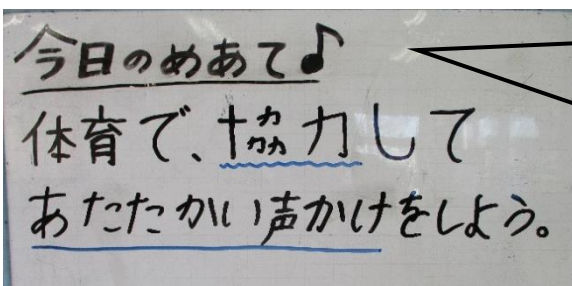 今日のめあて♪
体育で、協力して
あたたかい声かけをしよう。